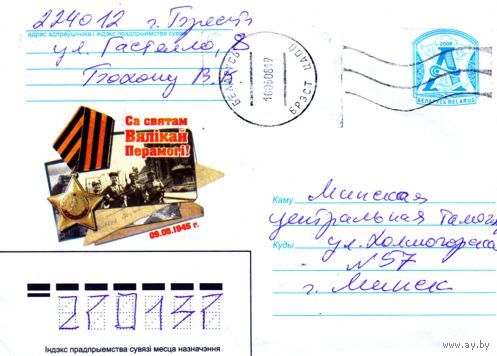 224012 г. Брест
адрас адпраўшчыка і індэкс прадпрыемства сувязі
ул. Гастелло, 8
БЕЛАРУСЬ
100608 19
БРЭСТ ЦАПП
2008
А
БЕЛАРУСЬ BELARUS
Са святам
Вялікай
Перамогі!
09.05.1945 г.
Каму Минская
центральная
Куды ул. Холмогорская
N 57
г. Минск
220132
Індэкс прадпрыемства сувязі месца назначэння
www.ay.by